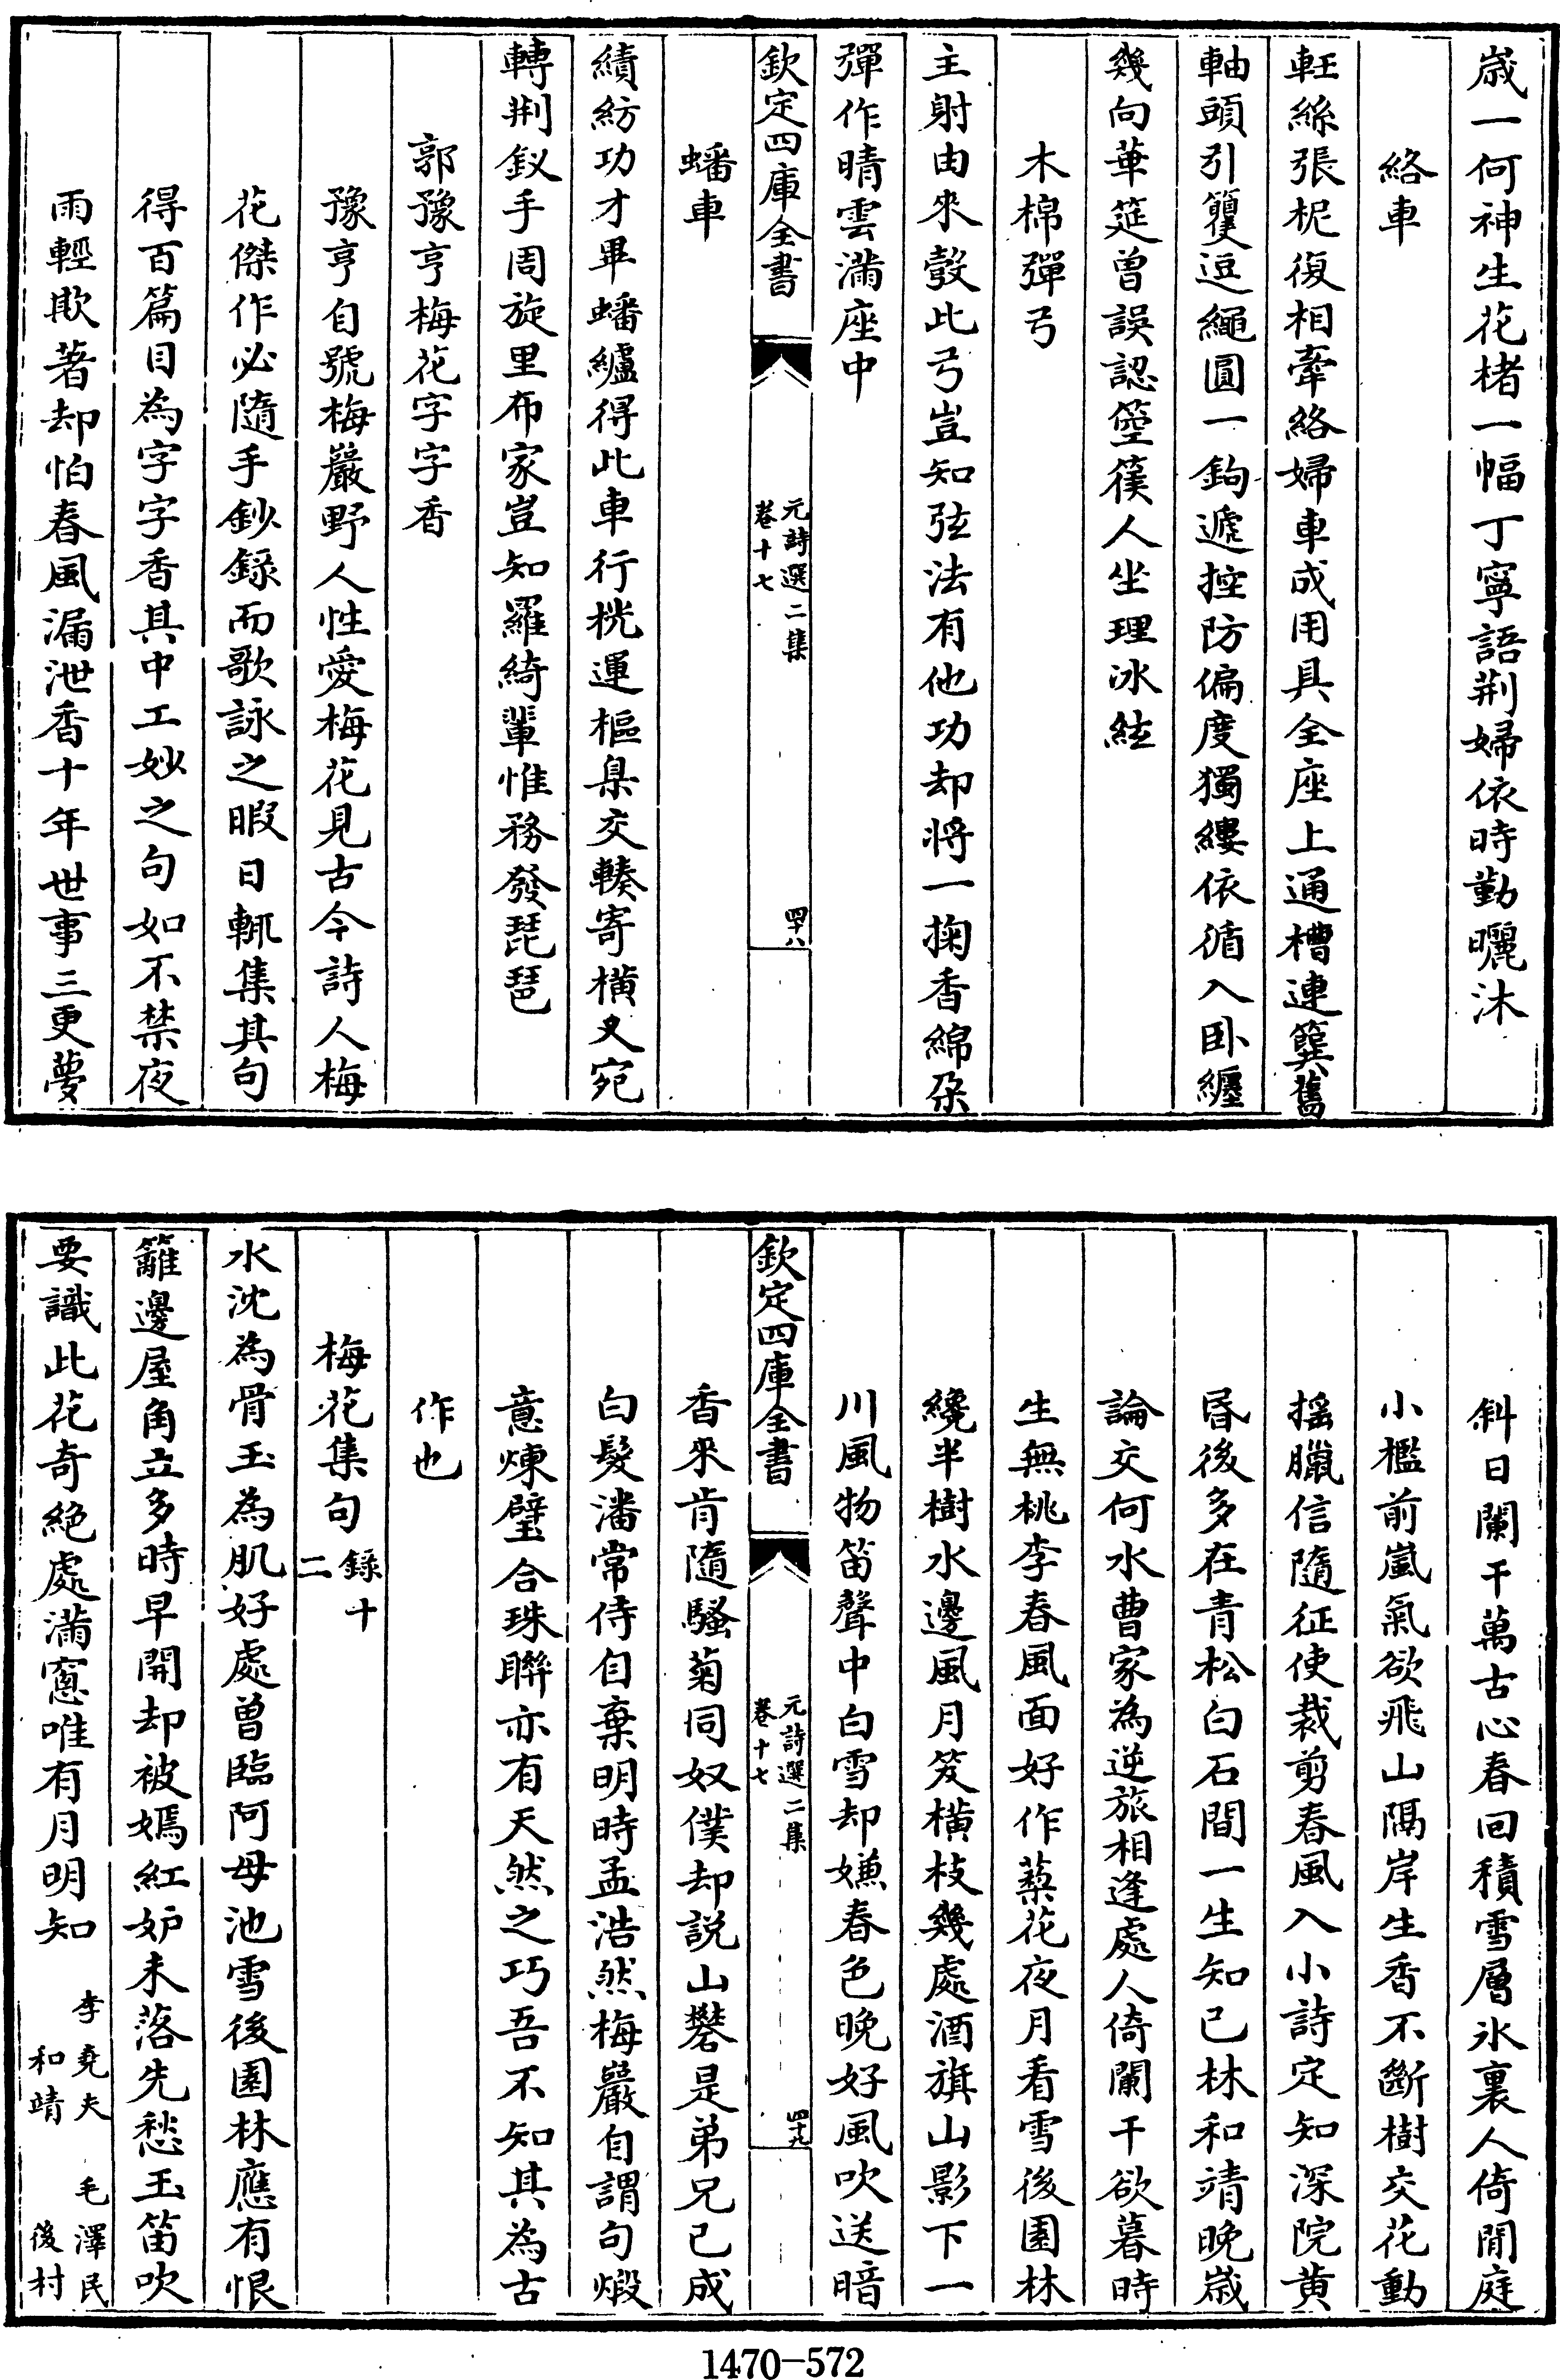 歳一何神生花楮一幅丁寧語荆婦依時勤曬沐
絡車
軠絲張柅復相牽絡婦車成用具全座上通槽連簨舊
軸頭引籰逗繩圓一鈎遞控防偏度獨縷依循入卧纏
幾向華筵曾誤認箜篌人坐理冰絃
木棉彈弓
主射由來彀此弓豈知弦法有他功却将一掬香綿朶
彈作晴雲滿座中
欽定四庫全書
元詩選二集
卷十七
四十八
蟠車
績紡功才畢蟠纑得此車行桄運樞臬交輳寄橫叉宛
轉荆釵手周旋里布家豈知羅綺輩惟務發琵琶
郭豫亨梅花字字香
豫亨自號梅巖野人性愛梅花見古今詩人梅
花傑作必隨手鈔錄而歌詠之暇日輒集其句
得百篇目為字字香其中工妙之句如不禁夜
雨輕欺著却怕春風漏泄香十年世事三更夢
斜日闌干萬古心春回積雪層氷裏人倚閒庭
小檻前嵐氣欲飛山隔岸生香不斷樹交花動
摇臘信隨征使裁剪春風入小詩定知深院黄
昏後多在青松白石間一生知已林和靖晚歳
論交何水曹家為逆旅相逢處人倚闌干欲暮時
生無桃李春風面好作蔾花夜月看雪後園林
纔半樹水邊風月笈橫枝幾處酒旗山影下一
川風物笛聲中白雪却嫌春色晚好風吹送暗
欽定四庫全書
元詩選二集
卷十七
四十九
香來肯隨騷菊同奴僕却説山礬是弟兄已成
白髮潘常侍自棄明時孟浩然梅巖自謂句煅
意煉璧合珠聯亦有天然之巧吾不知其為古
作也
梅花集句錄十二
水沈為骨玉為肌好處曾臨阿母池雪後園林應有恨
籬邊屋角立多時早開却被嫣紅妒未落先愁玉笛吹
要識此花奇絕處滿窻唯有月明知李堯夫和靖毛澤民後村
1470-572